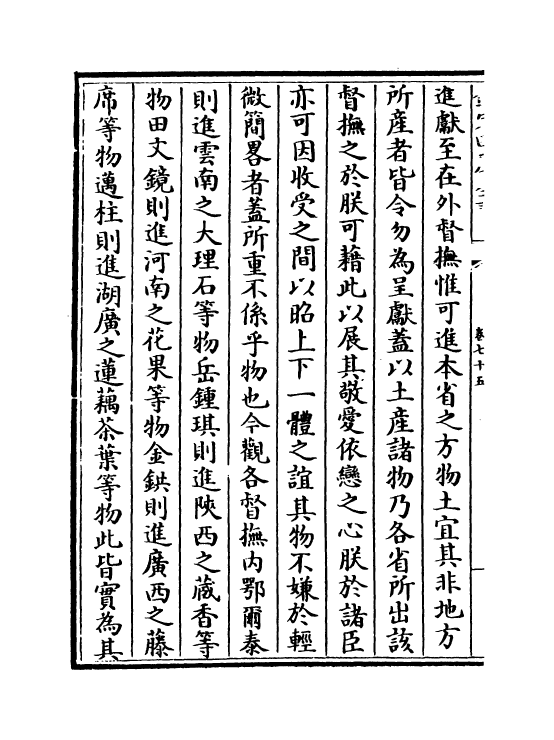 進獻至在外督撫惟可進本省之方物土宜其非地方
所産者皆令勿為呈獻蓋以土産諸物乃各省所出該
督撫之於朕可藉此以展其敬愛依戀之心朕於諸臣
亦可因收受之間以昭上下一體之誼其物不嫌於輕
微簡畧者蓋所重不係乎物也今觀各督撫内鄂爾泰
則進雲南之大理石等物岳鍾琪則進陜西之蔵香等
物田文鏡則進河南之花果等物金鉷則進廣西之藤
席等物邁柱則進湖廣之蓮藕茶葉等物此皆實為其
卷七十五